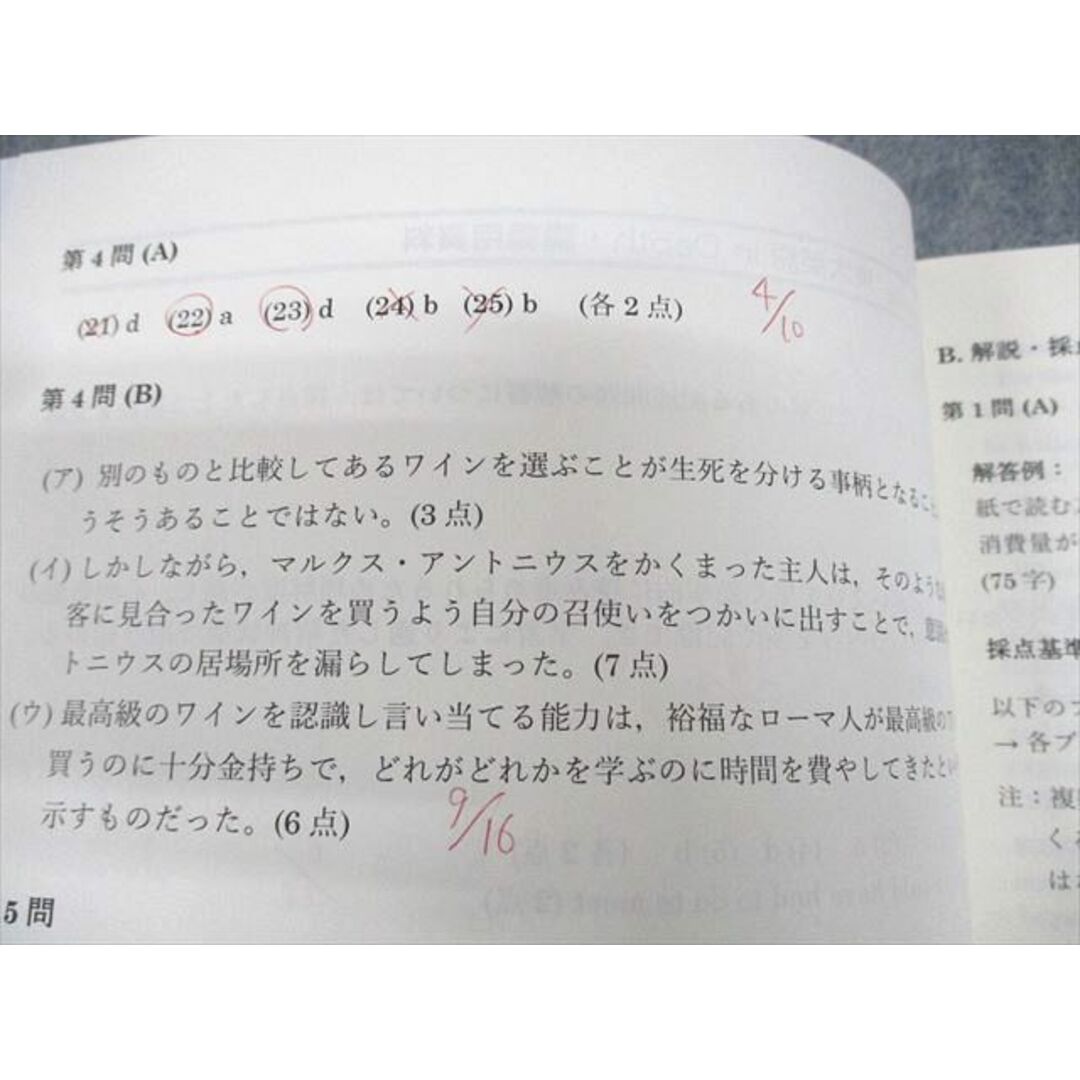 第4問(A)
(21) d (22) a (23) d (24) b (25) b (各2点)
4/10
第4問(B)
(ア) 別のものと比較してあるワインを選ぶことが生死を分ける事柄となるこ
うそうあることではない。(3点)
(イ) しかしながら，マルクス・アントニウスをかくまった主人は，そのような
客に見合ったワインを買うよう自分の召使いをつかいに出すことで，
トニウスの居場所を漏らしてしまった。(7点)
(ウ) 最高級のワインを認識し言い当てる能力は，裕福なローマ人が最高級の
買うのに十分金持ちで，どれがどれかを学ぶのに時間を費やしてきたと
示すものだった。(6点)
9/16
5問
B. 解説・採
第1問(A)
解答例：
紙で読む
消費量が
(75字)
採点基準
以下の
→ 各ブ
注：複
く
は